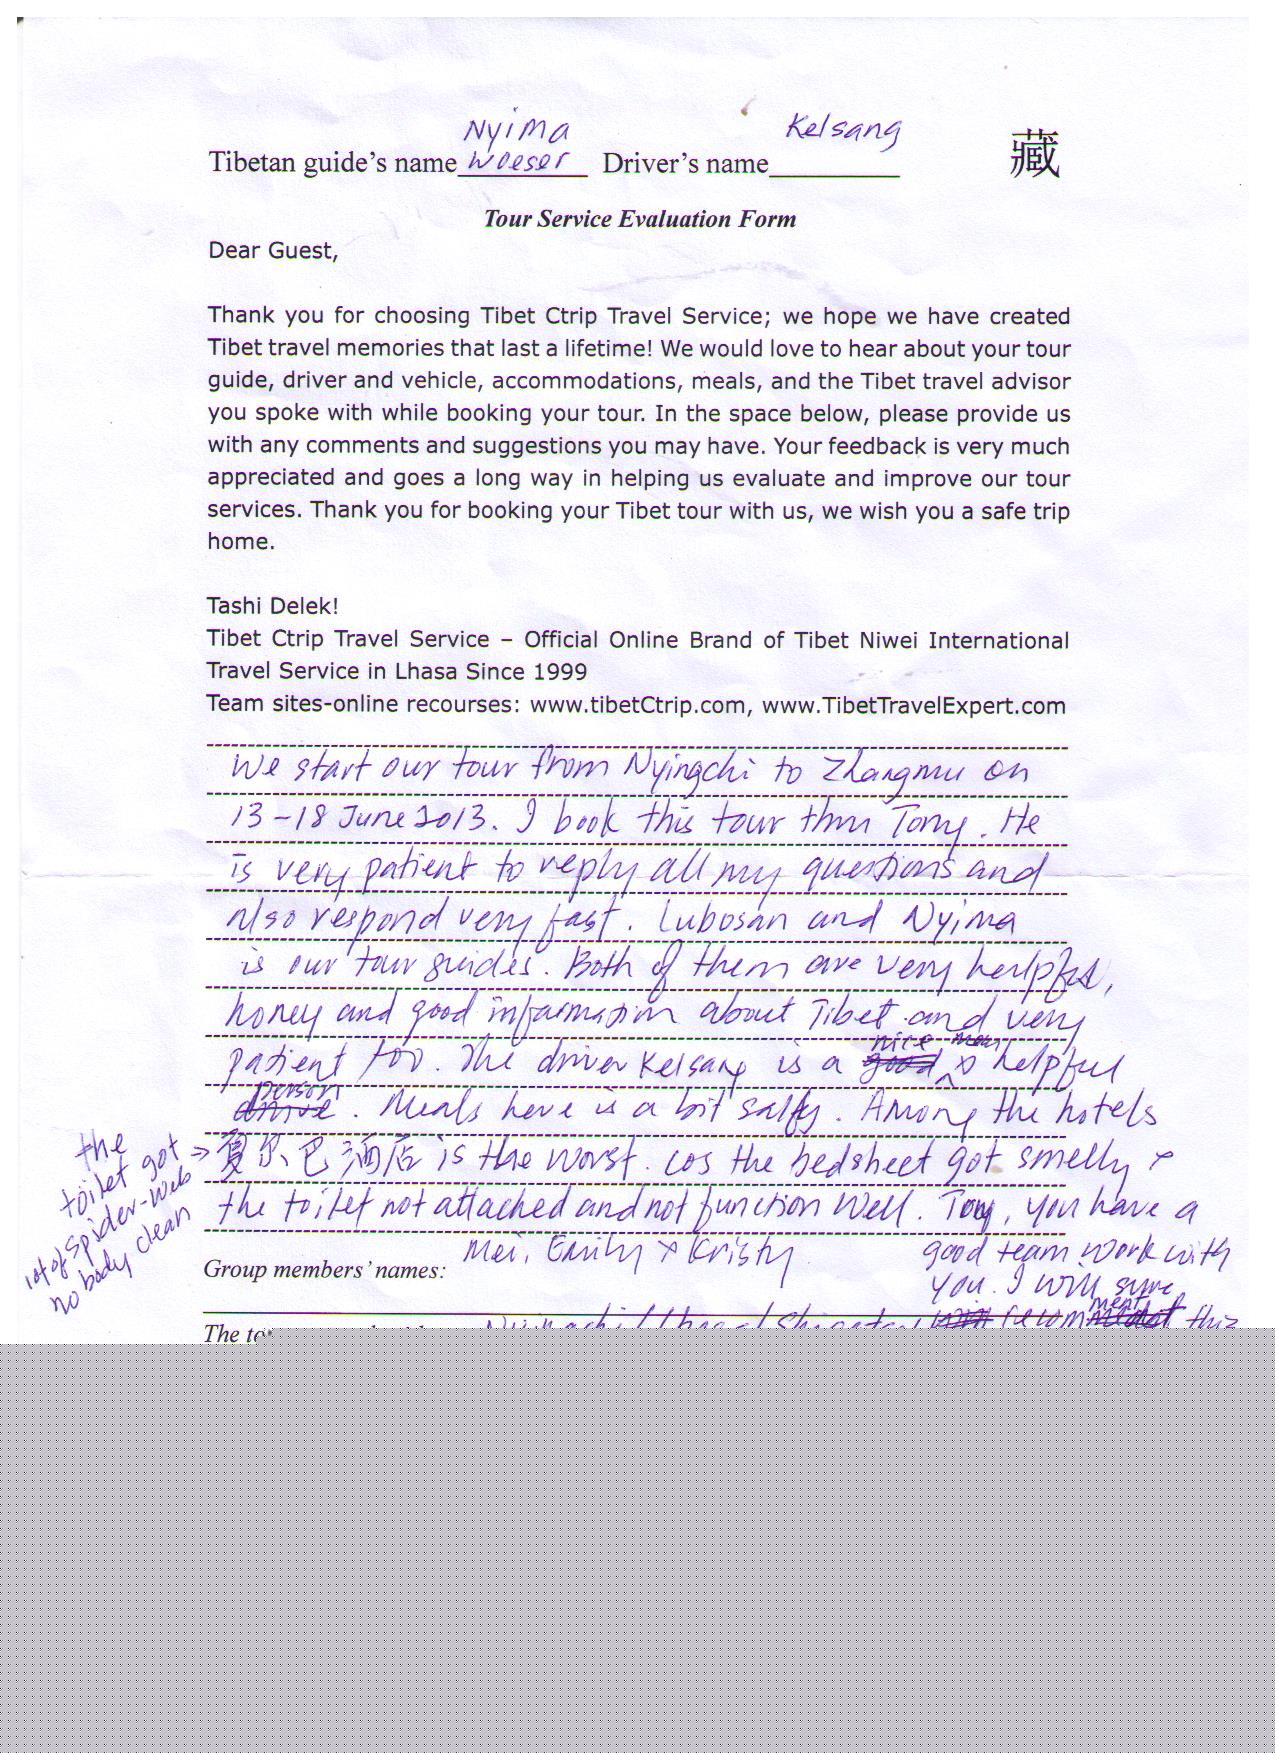 Nyima Kelsang
Tibetan guide's name Woeser Driver's name 藏
Tour Service Evaluation Form
Dear Guest,
Thank you for choosing Tibet Ctrip Travel Service; we hope we have created
Tibet travel memories that last a lifetime! We would love to hear about your tour
guide, driver and vehicle, accommodations, meals, and the Tibet travel advisor
you spoke with while booking your tour. In the space below, please provide us
with any comments and suggestions you may have. Your feedback is very much
appreciated and goes a long way in helping us evaluate and improve our tour
services. Thank you for booking your Tibet tour with us, we wish you a safe trip
home.
Tashi Delek!
Tibet Ctrip Travel Service – Official Online Brand of Tibet Niwei International
Travel Service in Lhasa Since 1999
Team sites-online recourses: www.tibetCtrip.com, www.TibetTravelExpert.com
We start our tour from Nyingchi to Zhangmu on
13-18 June 2013. I book this tour thru Tony. He
is very patient to reply all my questions and
also respond very fast. Lubosan and Nyima
is our tour guides. Both of them are very
honey and good information about Tibet and very
patient too. The driver Kelsang is a nice man & helpful
person. Meals here is a bit salty. Among the hotels
巴酒店 is the worst. cos the bedsheet got smelly &
the toilet not attached and not function well. Tony, you have a
the
toilet got
lot of spider-web
no body clean
Group members' names: Mei, Emily & Kristy
good team work with
you. I will sure
recomment this
The